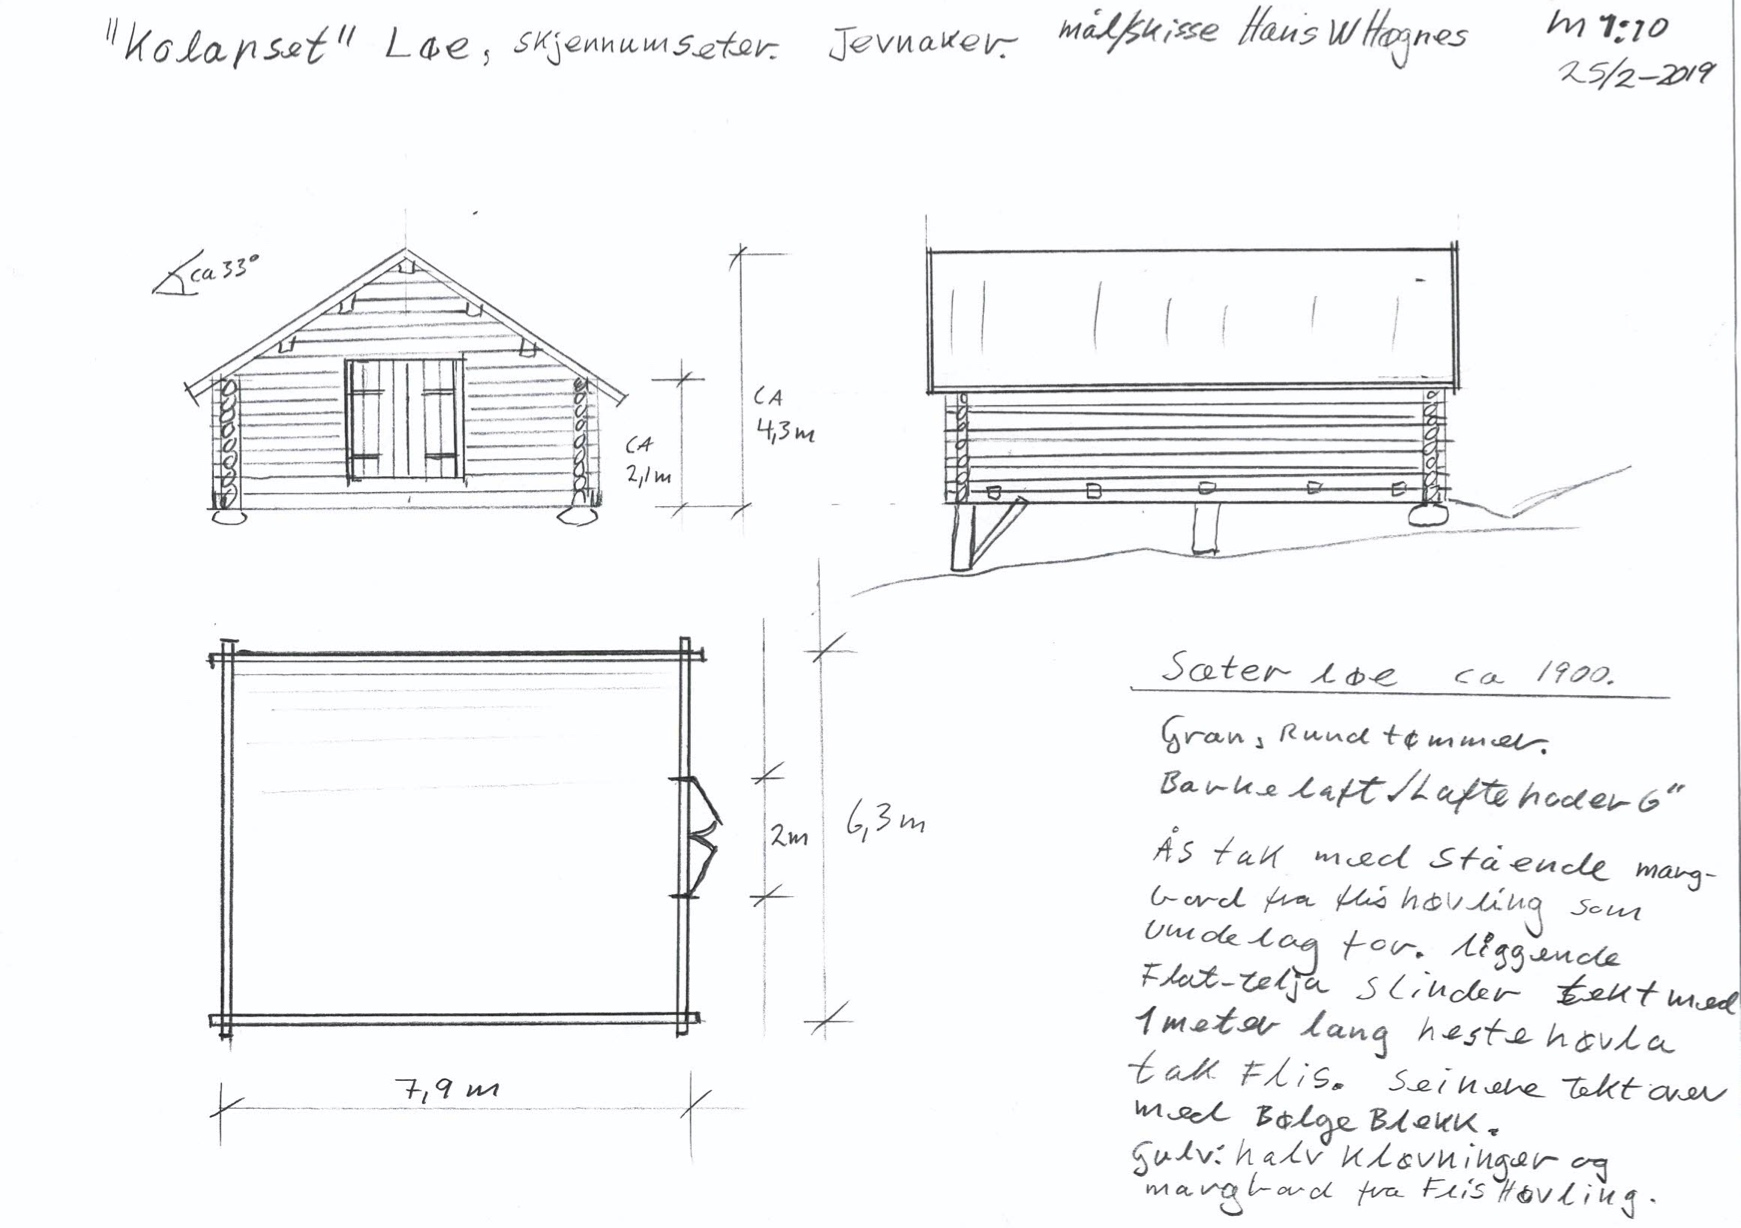 "Kolapset" Løe, Skjennumseter. Jevnaker. mål/skisse Hans W Høgnes M 1:10
25/2-2019
ca 33°
CA
4,3 m
CA
2,1 m
2m
6,3 m
7,9 m
Sæter løe ca 1900.
Gran, Rundtømmer.
Barkelaft / Laftehoder 6"
Ås tak med stående marg-
bord fra flishøvling som
undelag for. liggende
Flat-telja slinder tekt med
1 meter lang hestehøvla
tak Flis. Seinere tekt over
med Bølge Blekk.
Gulv: halv kløvninger og
margbord fra Flis Høvling.